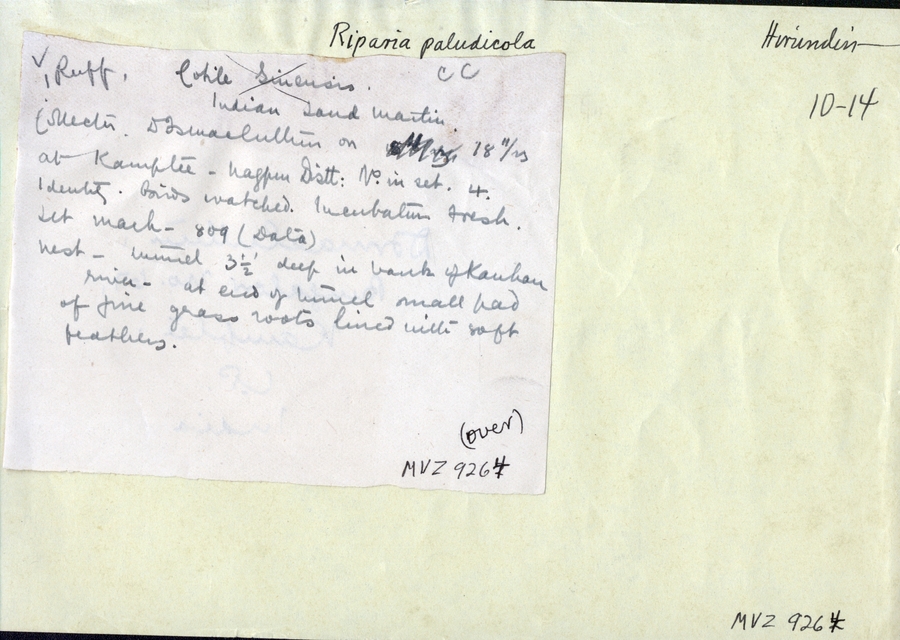 Riparia paludicola
Hirundin
10-14
✓, Ruff. Cotile Sinensis. CC
Indian Sand martin.
Collector. on 18 11/23
at Kamptee - Nagpur Distt: No. in set. 4.
Identity. Birds watched. Incubation fresh.
Set mark - 809 (Data)
Nest - tunnel 3½' deep in bank of Kanhan
river - at end of tunnel small pad
of fine grass roots lined with soft
feathers.
(over)
MVZ 9264
MVZ 9264